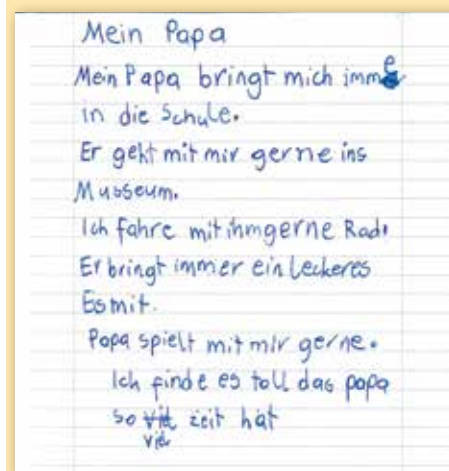 Mein Papa
Mein Papa bringt mich imme
in die Schule.
Er geht mit mir gerne ins
Musseum.
Ich fahre mit ihm gerne Rad.
Er bringt immer ein leckeres
Es mit.
Papa spielt mit mir gerne.
Ich finde es toll das papa
so viel zeit hat
viel